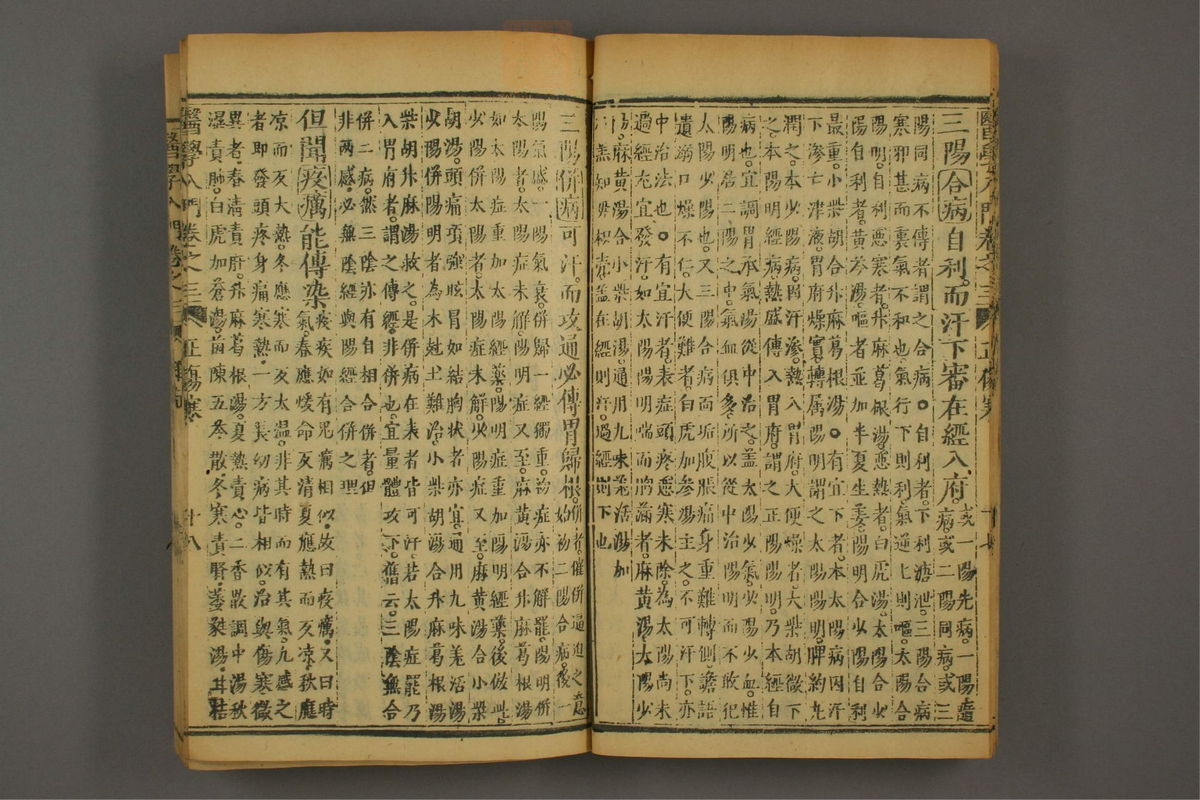 醫學入門卷之三 正傷寒 十七
三陽合病自利而汗下審在經入府。或一陽先病一陽隨
病或二陽同病或三
陽同病不傳者謂之合病○自利者下利溏泄三陽合病
寒邪甚而裏氣不和也氣行下則利氣逆上則嘔太陽合
陽明自利惡寒者升麻葛根湯惡熱者白虎湯太陽合少
陽自利者黃芩湯嘔者並加半夏生姜陽明合少陽自利
最重小柴胡合升麻葛根湯○有宜下者本太陽病因汗
下滲亡津液胃府燥實轉属陽明謂之太陽陽明脾約丸
潤之本少陽病因汗滲熱入胃府大便燥者大柴胡微下
之本陽明經病熱盛傳入胃府謂之正陽陽明乃本經自
病也宜調胃承氣湯從中治之盖太陽少氣少陽少血惟
陽明居二陽之中氣血俱多所以從中治陽明而不敢犯
太陽少陽也又三陽合病面垢腹脹痛身重難轉側譫語
遺溺口燥不仁大便難者白虎加參湯主之不可汗下亦
中治法也○有宜汗者表症頭疼惡寒未除為太陽尚未
過經尤宜發汗如太陽陽明喘而胸滿者麻黃湯太陽少
陽麻黃湯合小柴胡湯通用九味羌活湯加
知母枳壳盖在經則汗過經則下也
三陽併病可汗而攻通必傳胃歸根。併者催併逼迫之意
始初二陽合病後一
陽氣盛一陽氣衰併歸一經獨重初症亦不解罷陽明併
太陽者太陽症未解陽明症又至麻黃湯合升麻葛根湯
如太陽症重加太陽經藥陽明症重加陽明經藥後倣此
少陽併太陽者太陽症未解少陽症又至麻黃湯合小柴
胡湯頭痛項強眩冒如結胸狀者亦宜通用九味羌活湯
少陽併陽明者為木尅土難治小柴胡湯合升麻葛根湯
柴胡升麻湯救之是併病在表者皆可汗若太陽症罷乃
入胃府者謂之傳經非併也宜量體攻下舊云三陰無合
併二病然三陰亦有自相合併者但
非兩感必無陰經與陽經合併之理
但聞疫癘能傳染。疫疾如有鬼癘相似故曰疫癘又曰時
氣春應煖命反清夏應熱而反凉秋應
凉而反大熱冬應寒而反太温非其時而有其氣凢感之
者即發頭疼身痛寒熱一方長幼病皆相似治與傷寒微
異者春清責肝升麻葛根湯夏熱責心二香散調中湯秋
濕責肺白虎加蒼湯茵陳五苓散冬寒責腎萎蕤湯甘桔
醫學入門卷之三 正傷寒 十八